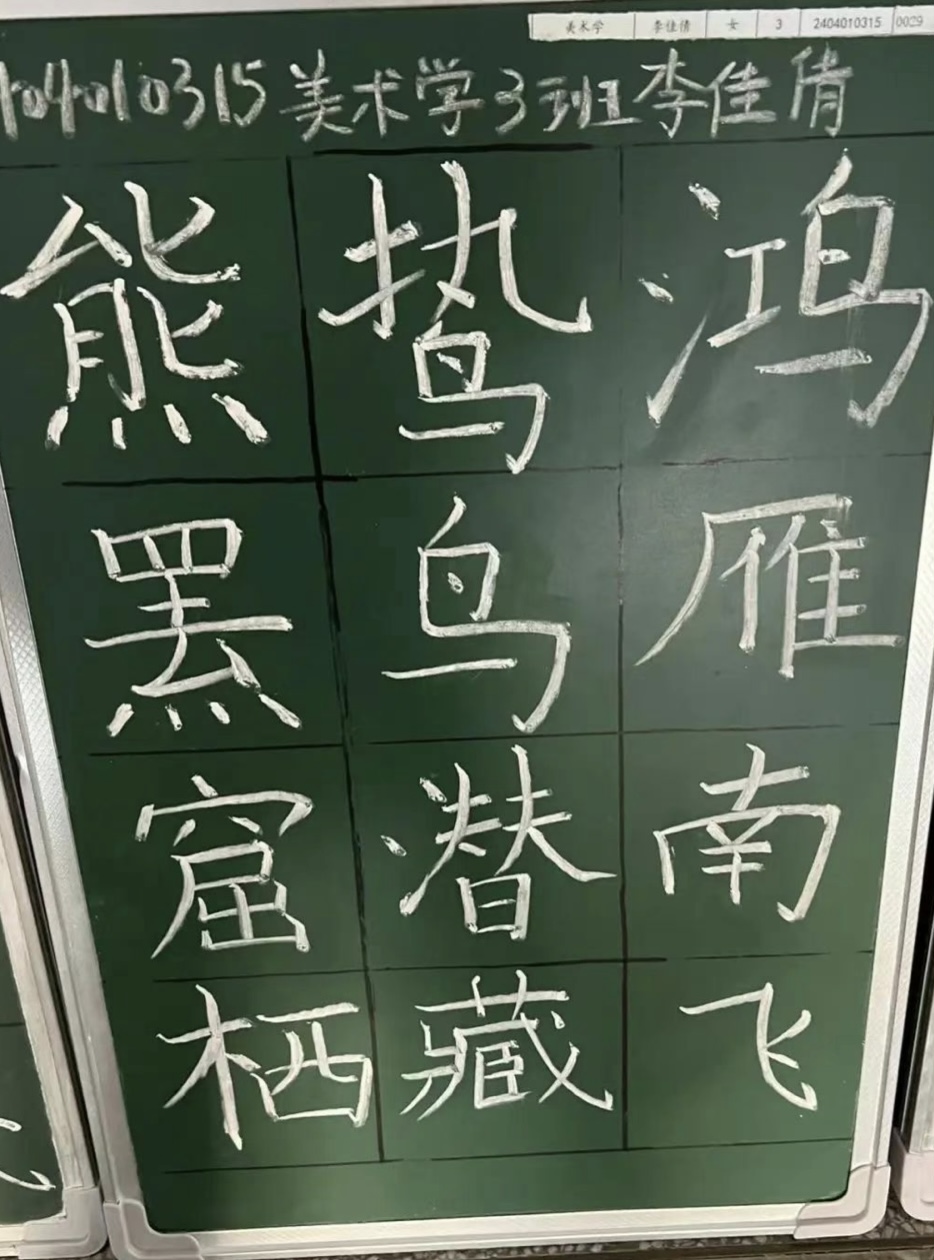 美术学 李佳倩 女 3 2404010315 0029
404010315 美术学3班李佳倩
鸿雁南飞
鸷鸟潜藏
熊罴窟栖